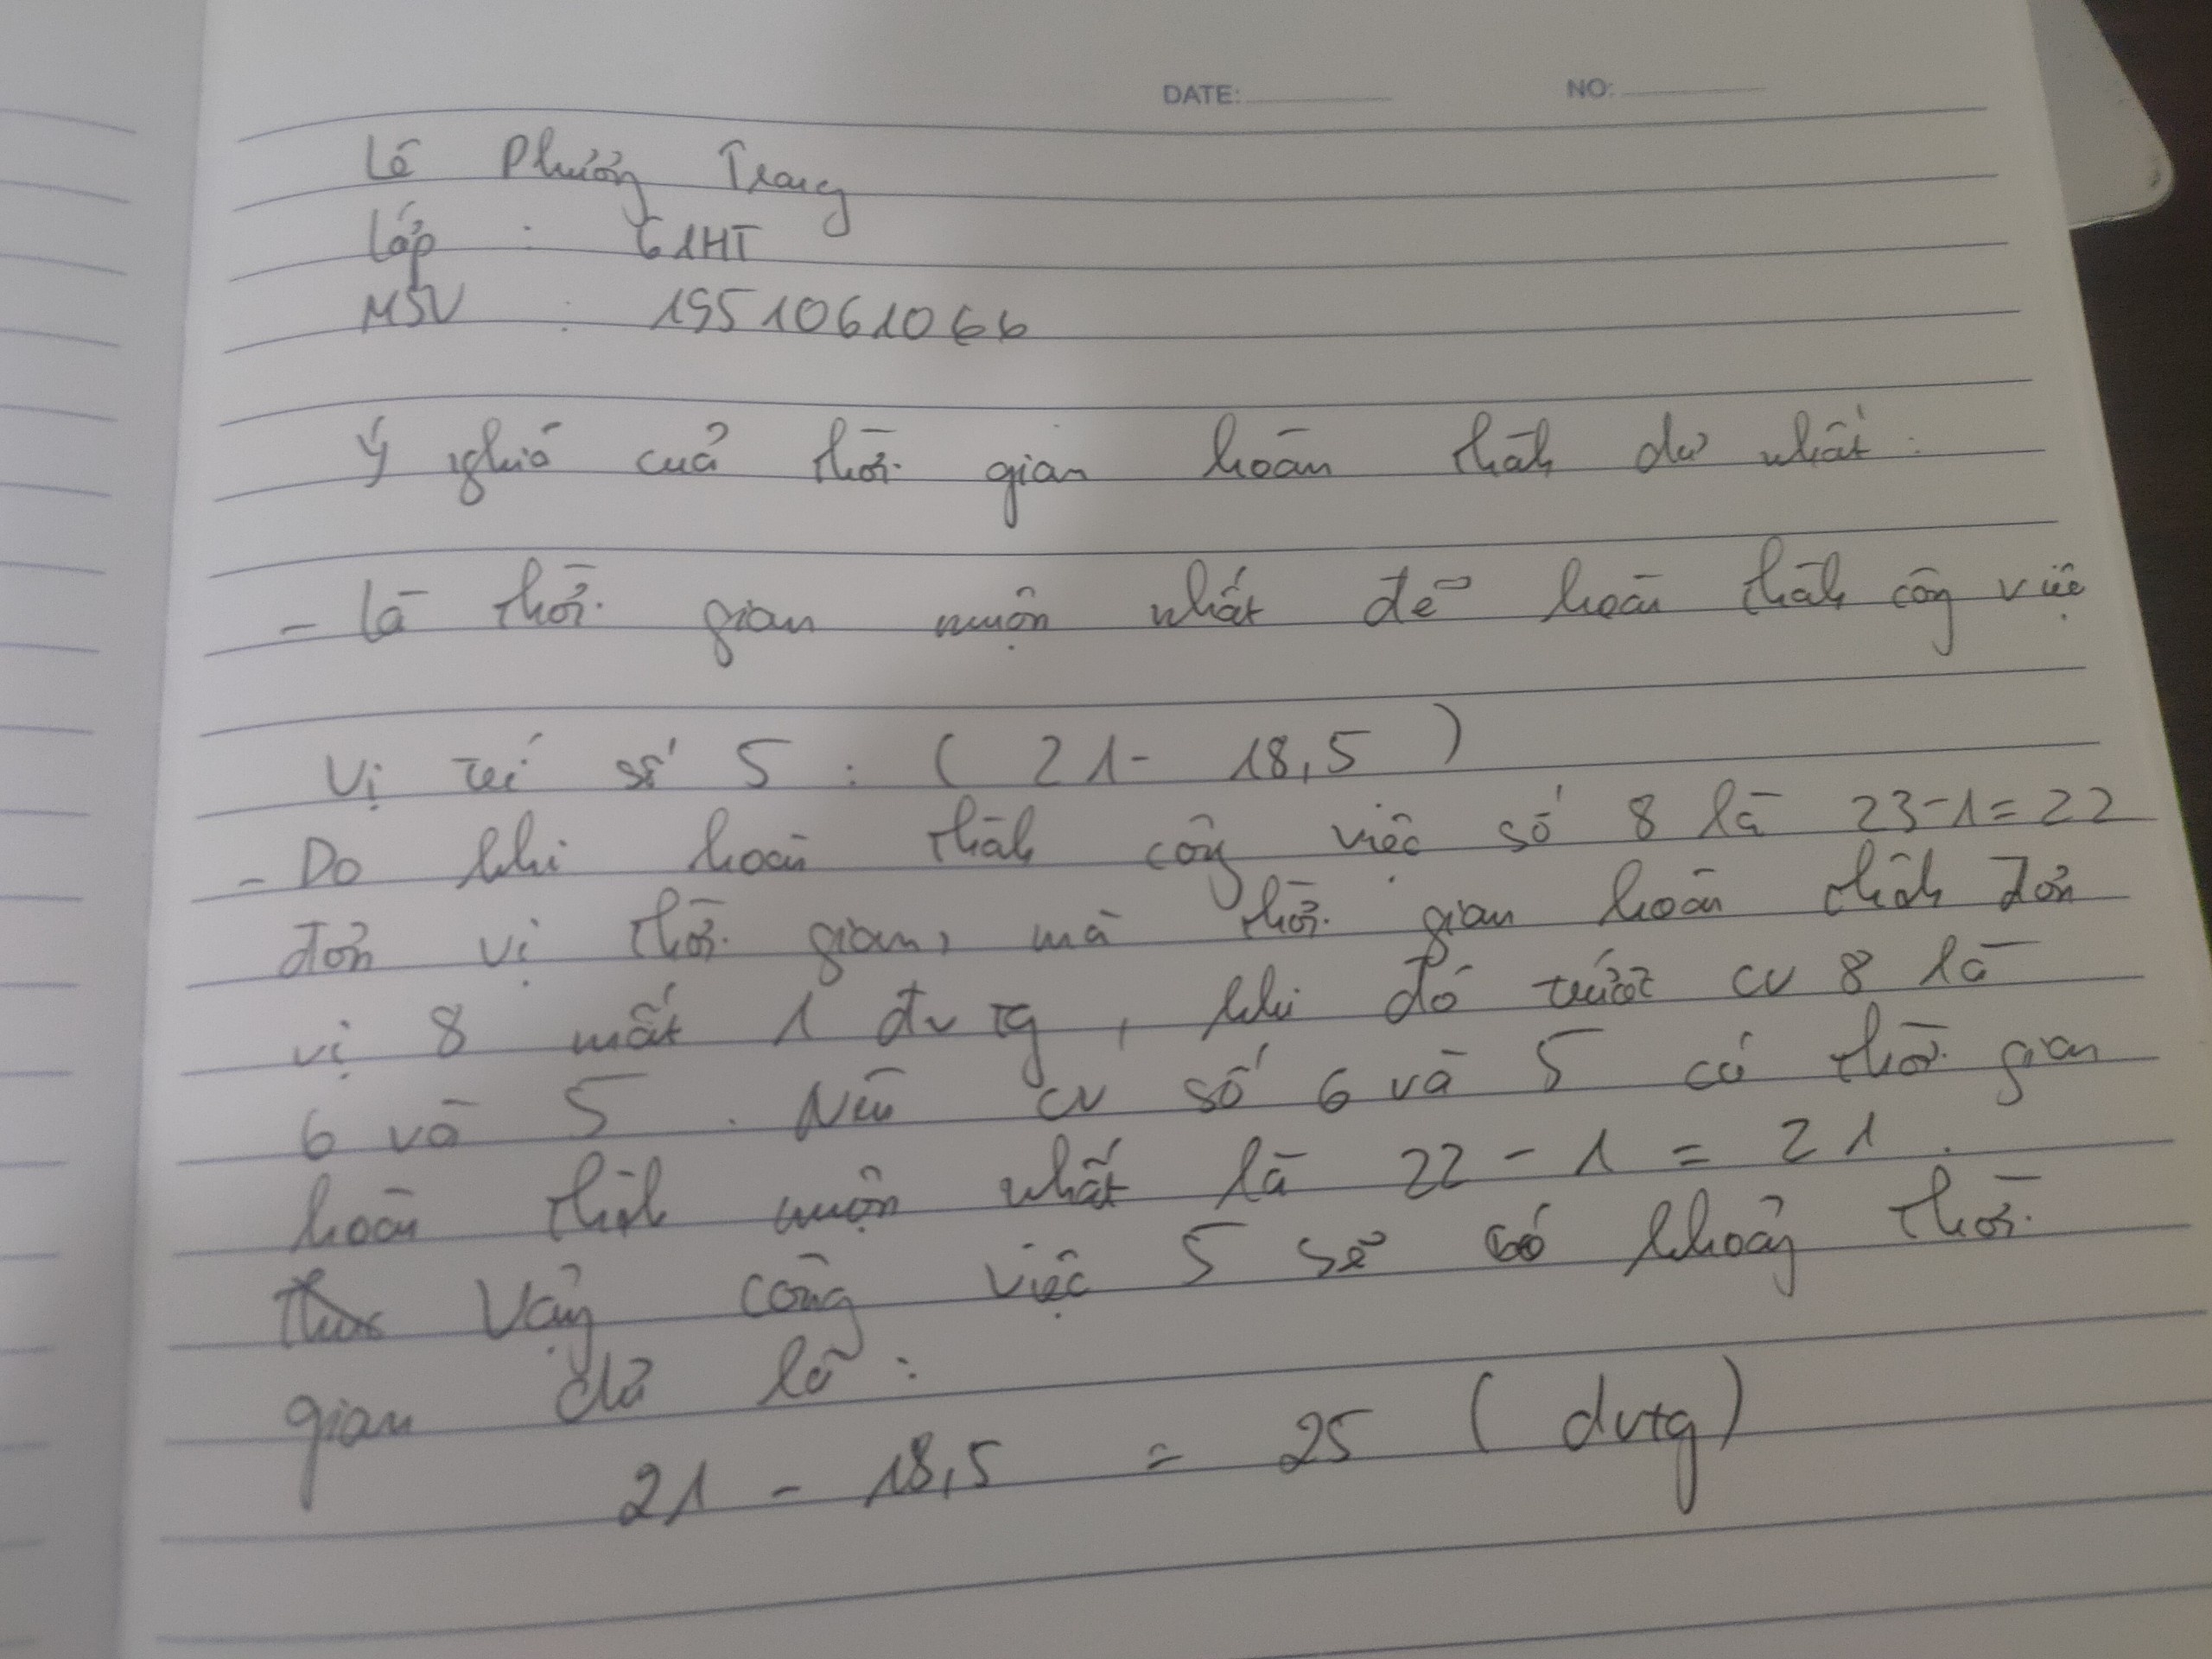 DATE: NO:
Lê Phương Trang
Lớp : 61HT
MSV : 1951061066
Ý nghĩa của thời gian hoàn thành dư nhất :
- Là thời gian muộn nhất để hoàn thành công việc
Vị trí số 5 : ( 21 - 18,5 )
- Do khi hoàn thành công việc số 8 là 23-1=22
đơn vị thời gian, mà thời gian hoàn thành đơn
vị 8 mất 1 đv tg, khi đó trước cv 8 là
6 và 5 . Nên cv số 6 và 5 có thời gian
hoàn thành muộn nhất là 22 - 1 = 21 .
Vậy công việc 5 sẽ có khoảng thời
gian dư là :
21 - 18,5 = 25 ( dvtg )